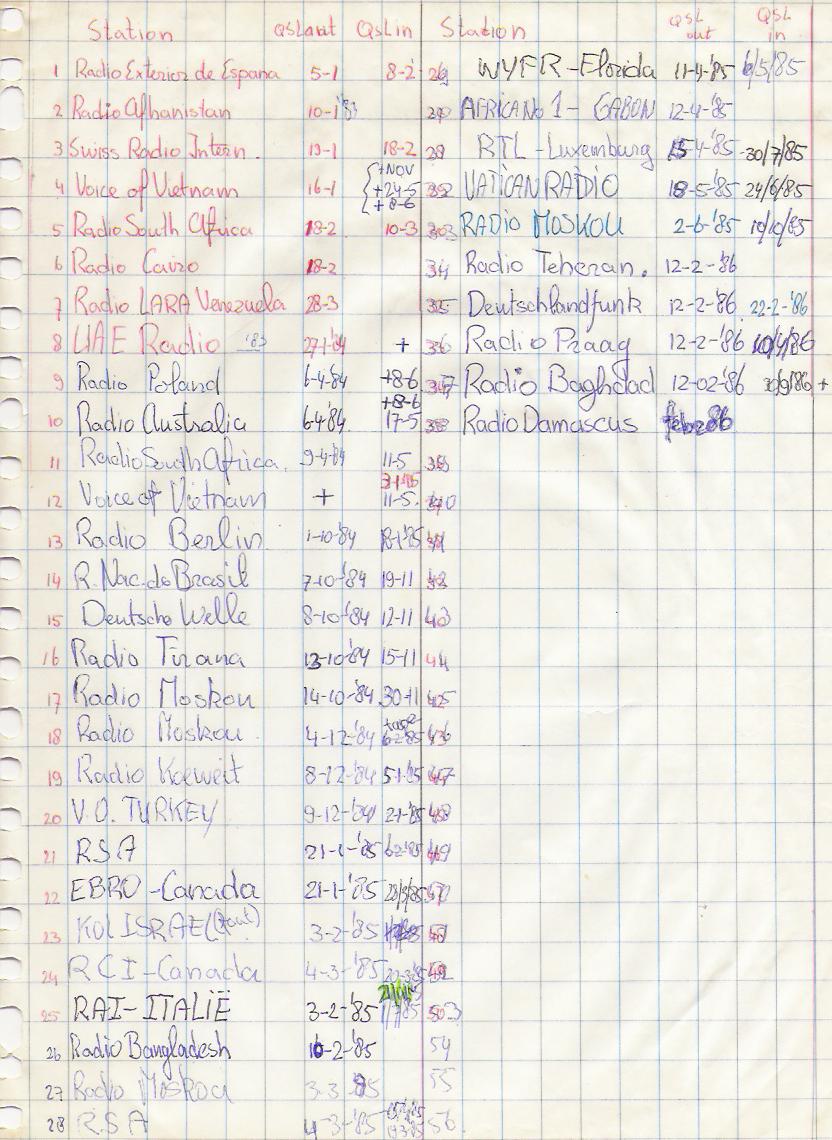 Station QSL out QSL in
1 Radio Exterior de Espana 5-1 8-2
2 Radio Afhanistan 10-1 '83
3 Swiss Radio Intern. 19-1 18-2
+NOV
4 Voice of Vietnam 16-1 +24-5
+8-6
5 Radio South Africa 18-2 10-3
6 Radio Cairo 18-2
7 Radio LARA Venezuela 28-3
8 UAE Radio '83 27-1-'84 +
9 Radio Poland 6-4-'84 +8-6
+8-6
10 Radio Australia 6-4-'84 17-5
11 Radio South Africa. 9-4-'84 11-5
3-1-'85
12 Voice of Vietnam + 11-5.
13 Radio Berlin 1-10-'84 18-1-'85
14 R. Nac. do Brasil 7-10-'84 19-11
15 Deutsche Welle 8-10-'84 12-11
16 Radio Tirana 13-10-'84 15-11
17 Radio Moskou 14-10-'84 30-11
18 Radio Moskou 4-12-'84 6-2-'85
19 Radio Koeweit 8-12-'84 5-1-'85
20 V.O. TURKEY 9-12-'84 2-1-'85
21 RSA 21-1-'85 6-2-'85
22 EBRO-Canada 21-1-'85 28/3/85
23 KOL ISRAEL 3-2-'85
24 RCI-Canada 4-3-'85 20-3-'85
25 RAI-ITALIË 3-2-'85 1/7/85
26 Radio Bangladesh 10-2-'85
27 Radio Moskou 3-3 '85
28 RSA 4-3-'85
Station QSL out QSL in
29 WYFR-Florida 11-4-'85 6/5/85
AFRICA No 1 - GABON 12-4-'85
RTL - Luxemburg 15-4-'85 30/7/85
32 VATICAN RADIO 18-5-'85 24/6/85
33 RADIO MOSKOU 2-6-'85 10/10/85
34 Radio Teheran. 12-2-'86
35 Deutschlandfunk 12-2-'86 22-2-'86
36 Radio Praag 12-2-'86 10/4/86
37 Radio Baghdad 12-02-'86 30/9/86 +
38 Radio Damascus febr 86
39
40
41
42
43
44
45
46
47
48
49
50
51
52
53
54
55
56